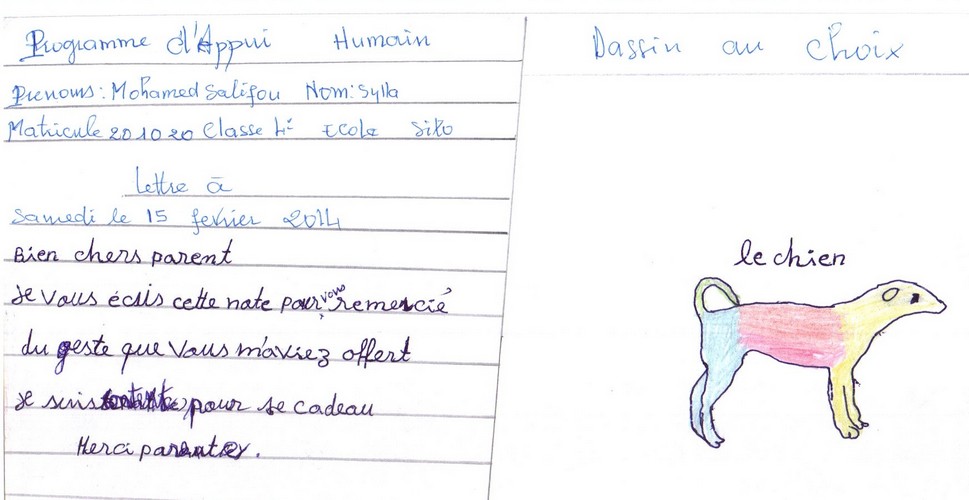 Programme d'Appui Humain
Prenoms: Mohamed Salifou Nom: Sylla
Matricule 201020 Classe 4è Ecole Siko
Lettre à
Samedi le 15 fevrier 2014
Bien chers parent
Je vous écris cette note pour vous remercié
du geste que vous m'aviez offert
je suis pour se cadeau
Merci parent
Dassin au choix
le chien